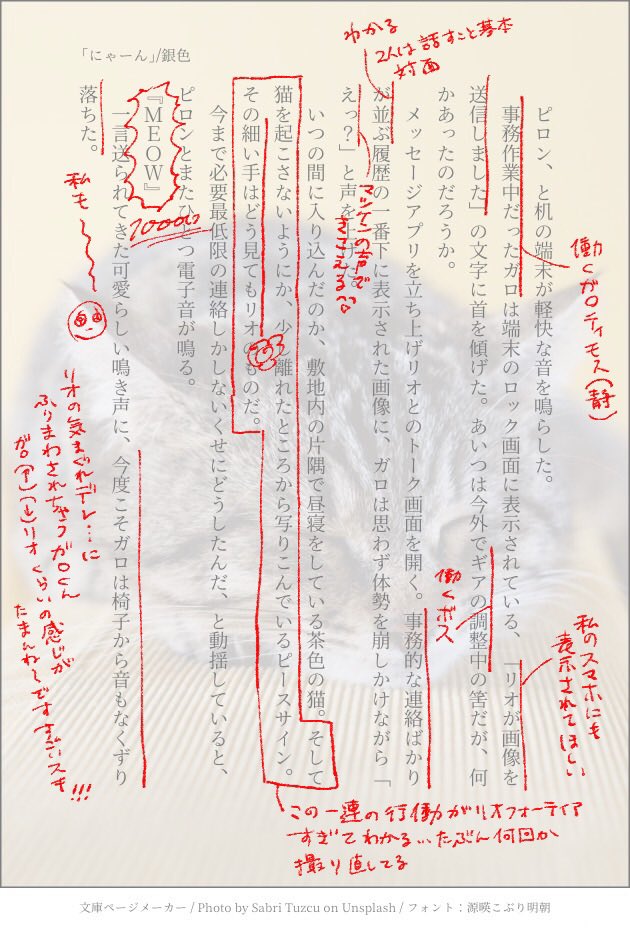 「にゃーん」/銀色
ピロン、と机の端末が軽快な音を鳴らした。
事務作業中だったガロは端末のロック画面に表示されている、「リオが画像を
送信しました」の文字に首を傾げた。あいつは今外でギアの調整中の筈だが、何
かあったのだろうか。
メッセージアプリを立ち上げリオとのトーク画面を開く。事務的な連絡ばかり
が並ぶ履歴の一番下に表示された画像に、ガロは思わず体勢を崩しかけながら「
えっ？」と声を上げた。
いつの間に入り込んだのか、敷地内の片隅で昼寝をしている茶色の猫。そして
猫を起こさないようにか、少し離れたところから写りこんでいるピースサイン。
その細い手はどう見てもリオのものだ。
今まで必要最低限の連絡しかしないくせにどうしたんだ、と動揺していると、
ピロンとまたひとつ電子音が鳴る。
『MEOW』
一言送られてきた可愛らしい鳴き声に、今度こそガロは椅子から音もなくずり
落ちた。
わかる
2人は話すこと基本
対面
働くガロティモス(静)
私のスマホにも
表示されてほしい
働くボス
マツケンの声で
きこえる
この一連の行動がリオフォーティア
すぎてわかる…たぶん何回か
撮り直してる
10000
私も
リオの気まぐれデレ…に
ふりまわされちゃうガロくん
ガロ(→)(←)リオくらいの感じが
たまんね〜です
スキ!!!
文庫ページメーカー / Photo by Sabri Tuzcu on Unsplash / フォント：源暎こぶり明朝